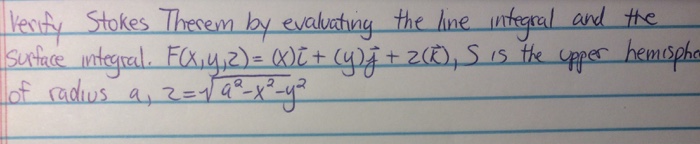 Verify Stokes Therem by evaluating the line integral and the
Surface integral. F(x,y,z) = (x)i⃗ + (y)j⃗ + z(k⃗), S is the upper hemisphe
of radius a, z=√a²-x²-y²